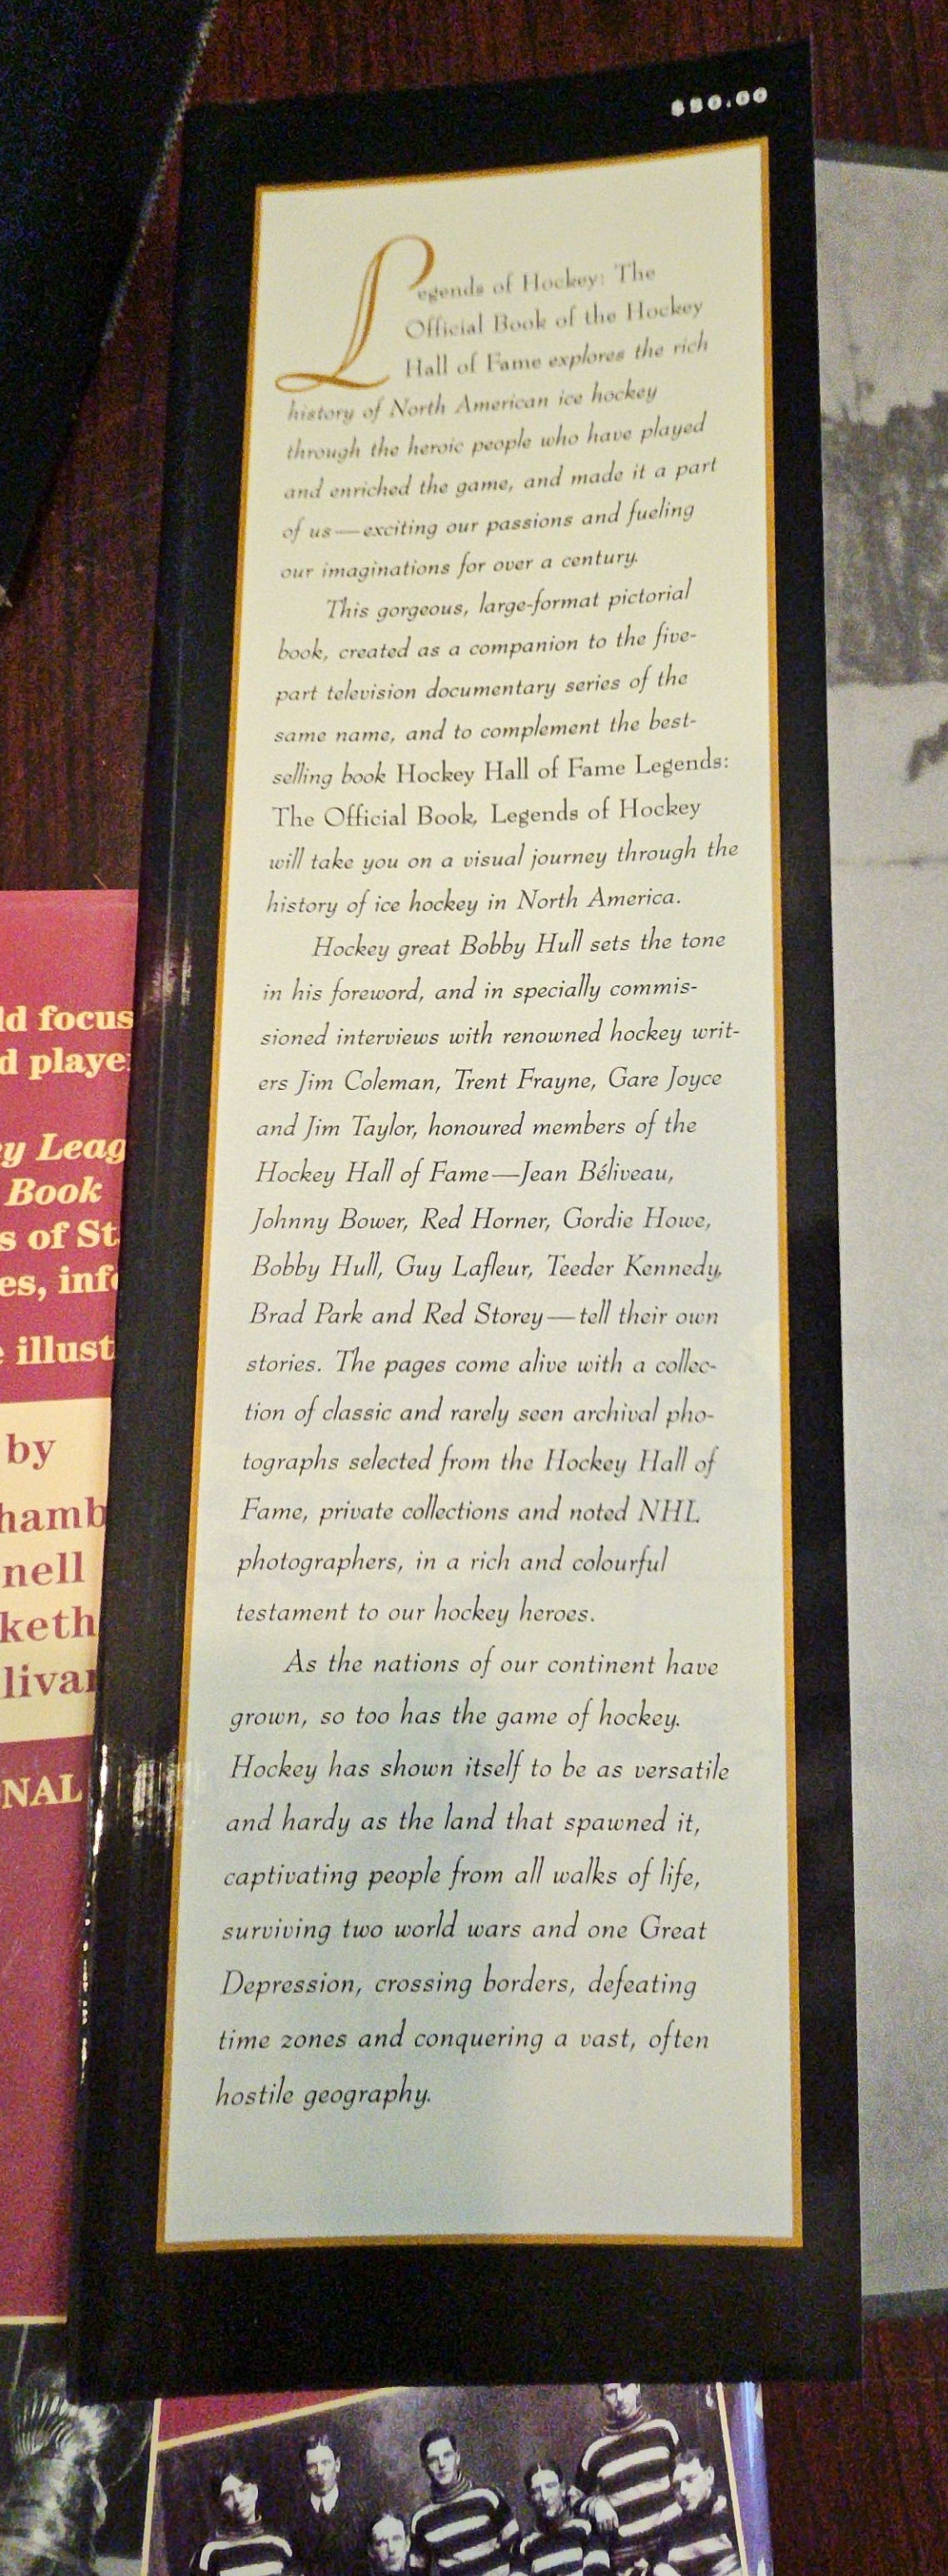 Legends of Hockey: The
Official Book of the Hockey
Hall of Fame explores the rich
history of North American ice hockey
through the heroic people who have played
and enriched the game, and made it a part
of us—exciting our passions and fueling
our imaginations for over a century.
This gorgeous, large-format pictorial
book, created as a companion to the five-
part television documentary series of the
same name, and to complement the best-
selling book Hockey Hall of Fame Legends:
The Official Book, Legends of Hockey
will take you on a visual journey through the
history of ice hockey in North America.
Hockey great Bobby Hull sets the tone
in his foreword, and in specially commis-
sioned interviews with renowned hockey writ-
ers Jim Coleman, Trent Frayne, Gare Joyce
and Jim Taylor, honoured members of the
Hockey Hall of Fame—Jean Béliveau,
Johnny Bower, Red Horner, Gordie Howe,
Bobby Hull, Guy Lafleur, Teeder Kennedy,
Brad Park and Red Storey—tell their own
stories. The pages come alive with a collec-
tion of classic and rarely seen archival pho-
tographs selected from the Hockey Hall of
Fame, private collections and noted NHL
photographers, in a rich and colourful
testament to our hockey heroes.
As the nations of our continent have
grown, so too has the game of hockey.
Hockey has shown itself to be as versatile
and hardy as the land that spawned it,
captivating people from all walks of life,
surviving two world wars and one Great
Depression, crossing borders, defeating
time zones and conquering a vast, often
hostile geography.
ld focus
d playe
y Leag
Book
s of St
es, inf
illust
by
hamb
nell
keth
livan
NAL